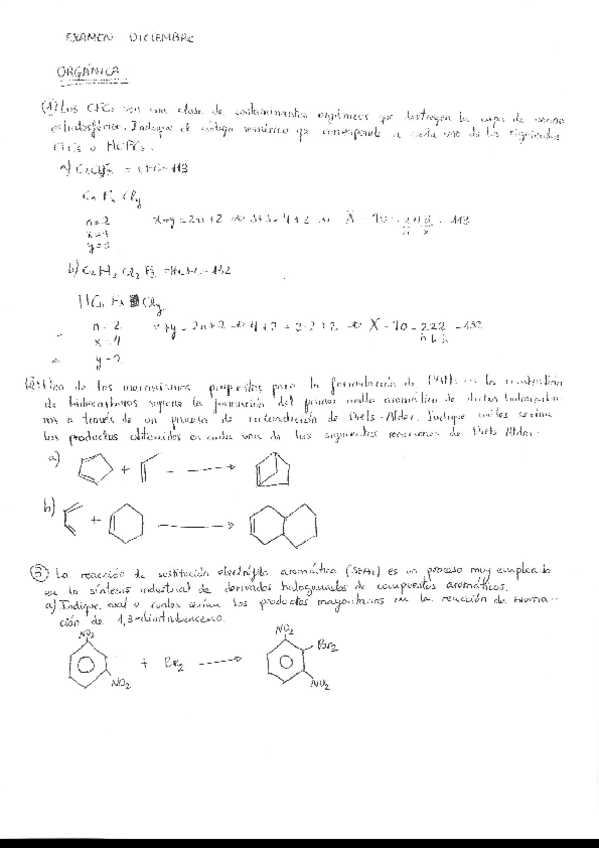 EXAMEN DICIEMBRE
ORGÁNICA
(1) Los CFCs son una clase de contaminantes orgánicos que destruyen la capa de ozono
estratosférico. Indique el código numérico que corresponde a cada uno de los siguientes
CFCs o HCFCs.
a) = CFC-113
Cn Fx Cly
n=2 x+y=2n+2 3+3=4+2 X-90=203=113
x=3 n x
y=3
b) C2 H2 Cl2 F2 = HCFC-132
HCn Fx Cly
n=2 x+y=2n+2 X-90=222-132
x=4
y=2
(2) Uno de los mecanismos propuestos para la formación de PAHs en la combustión
de hidrocarburos supone la formación del primer anillo aromático
a través de un proceso de Diels-Alder. Indique cuáles serían
los productos obtenidos en cada una de las siguientes reacciones de Diels Alder:
a) +
b) +
(3) La reacción de sustitución electrófila aromática (SEAr) es un proceso muy empleado
en la síntesis industrial de derivados halogenados de compuestos aromáticos.
a) Indique cual o cuales serían los productos mayoritarios en la reacción de broma-
ción de 1,3-dinitrobenceno.
NO2 NO2
+ Br2 Br2
NO2 NO2